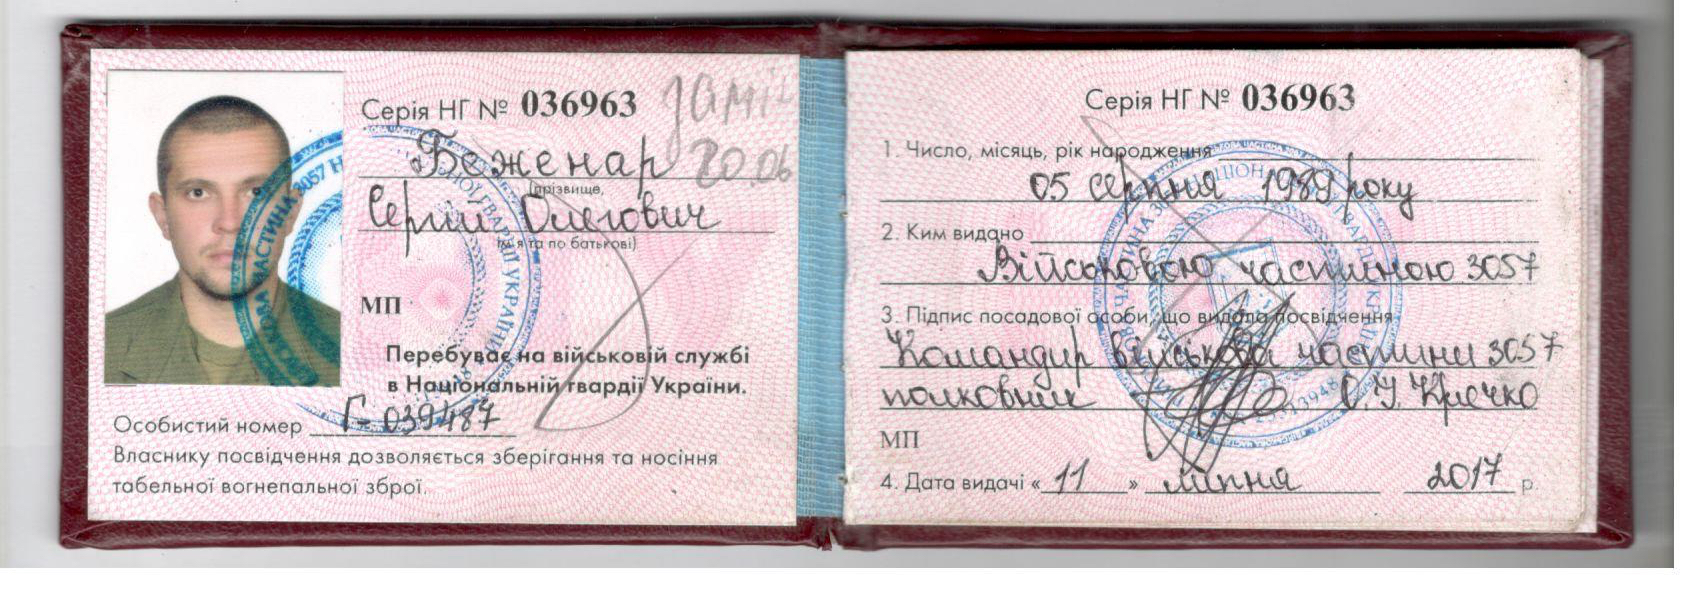 Серія НГ № 036963
Беженар
(прізвище,
Сергій Олегович
ім'я та по батькові)
20.06
МП
Перебуває на військовій службі
в Національній гвардії України.
Особистий номер Г-039487
Власнику посвідчення дозволяється зберігання та носіння
табельної вогнепальної зброї.
Серія НГ № 036963
1. Число, місяць, рік народження
05 серпня 1989 року
2. Ким видано
Військовою частиною 3057
3. Підпис посадової особи, що видала посвідчення
Командир військова частини 3057
полковник
МП
4. Дата видачі « 11 » липня 2017 р.